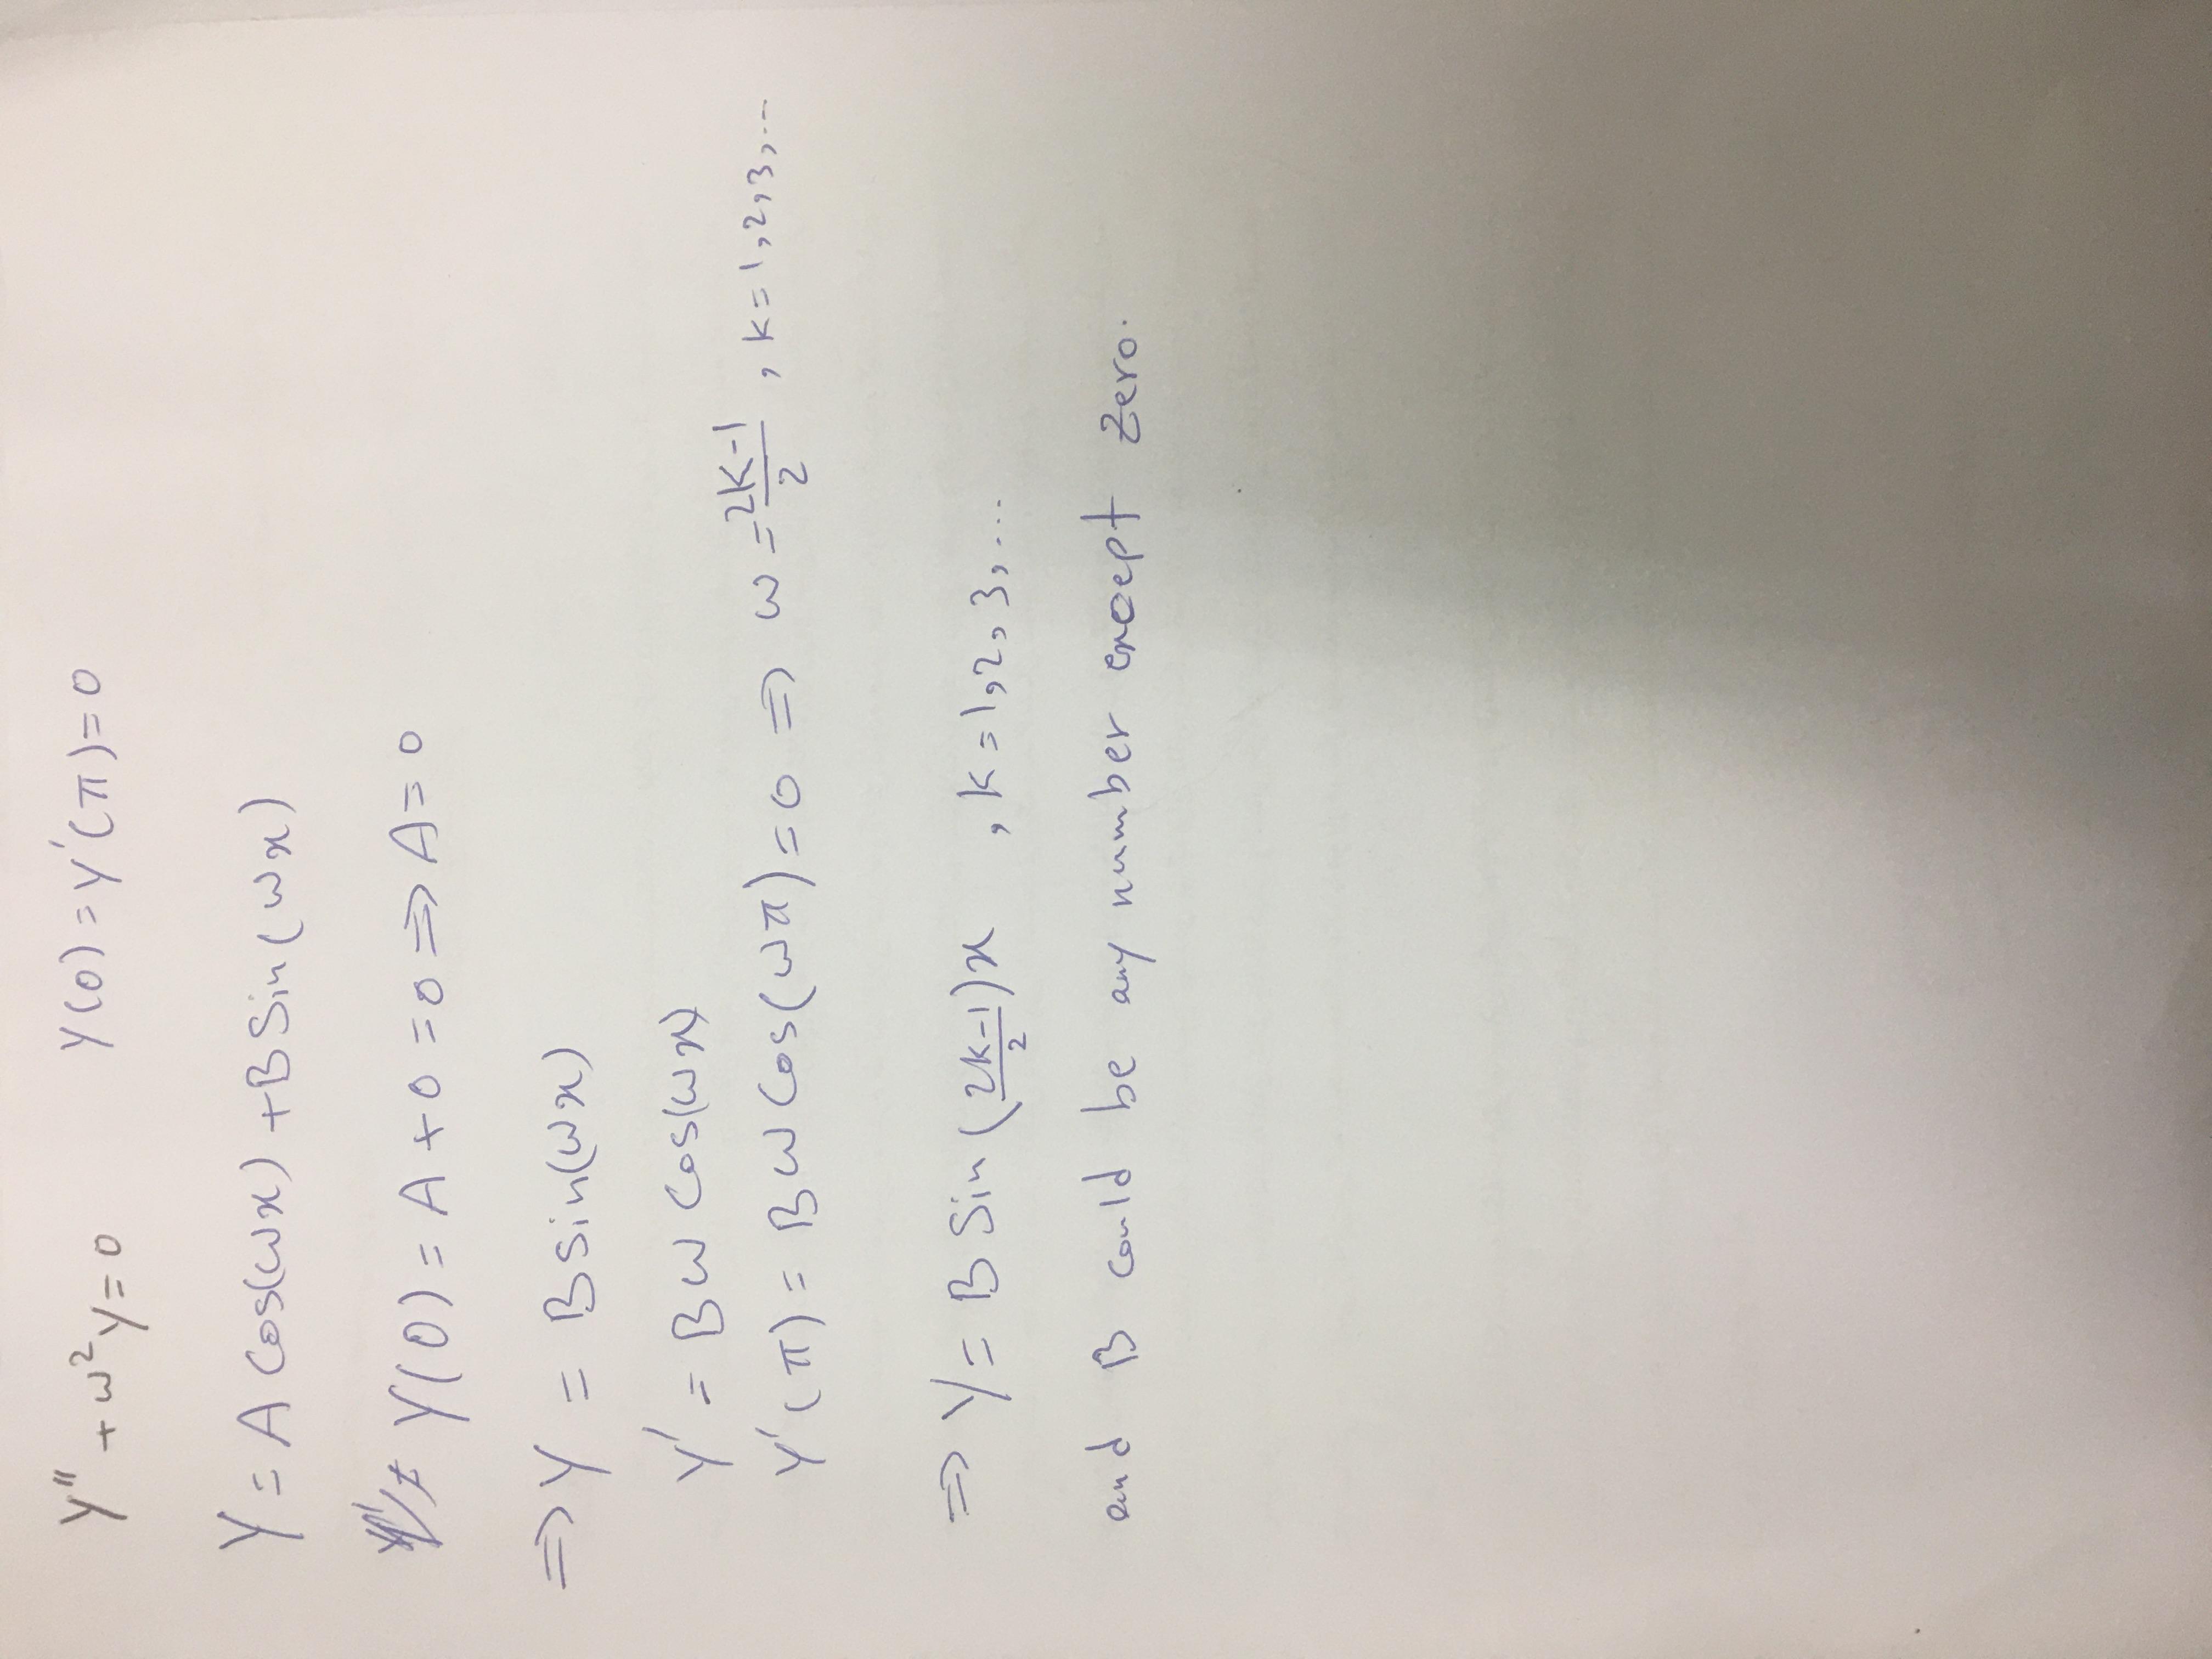 y" + ω² y = 0    y(0) = y'(π) = 0
y = A cos(ωx) + B sin(ωx)
y(0) = A + 0 = 0 ⇒ A = 0
⇒ y = B sin(ωx)
y' = Bω cos(ωx)
y'(π) = Bω cos(ωπ) = 0 ⇒ ω = \frac{2k-1}{2} , k = 1, 2, 3, ...
⇒ y = B sin(\frac{2k-1}{2})x , k = 1, 2, 3, ...
and B could be any number except zero.